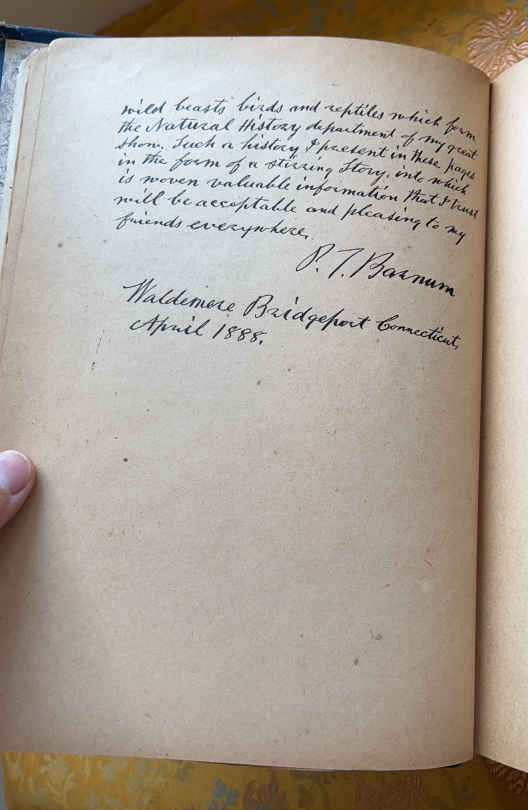 wild beasts birds and reptiles which form
the Natural History department of my great
show. Such a history I present in these pages
in the form of a stirring Story, into which
is woven valuable information that I trust
will be acceptable and pleasing to my
friends everywhere.
P. T. Barnum
Waldemere Bridgeport Connecticut,
April 1888.